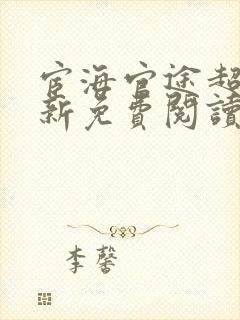 宦海官途超
新免費閱讀
李馨